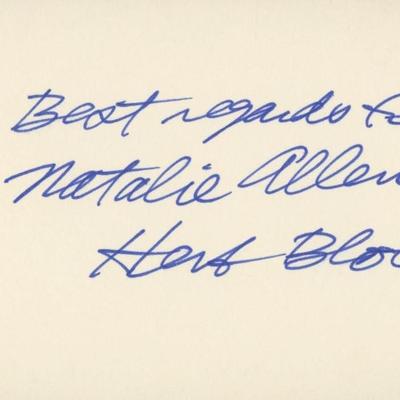 Best regards fo
Natalie Allen
Herb Bloc